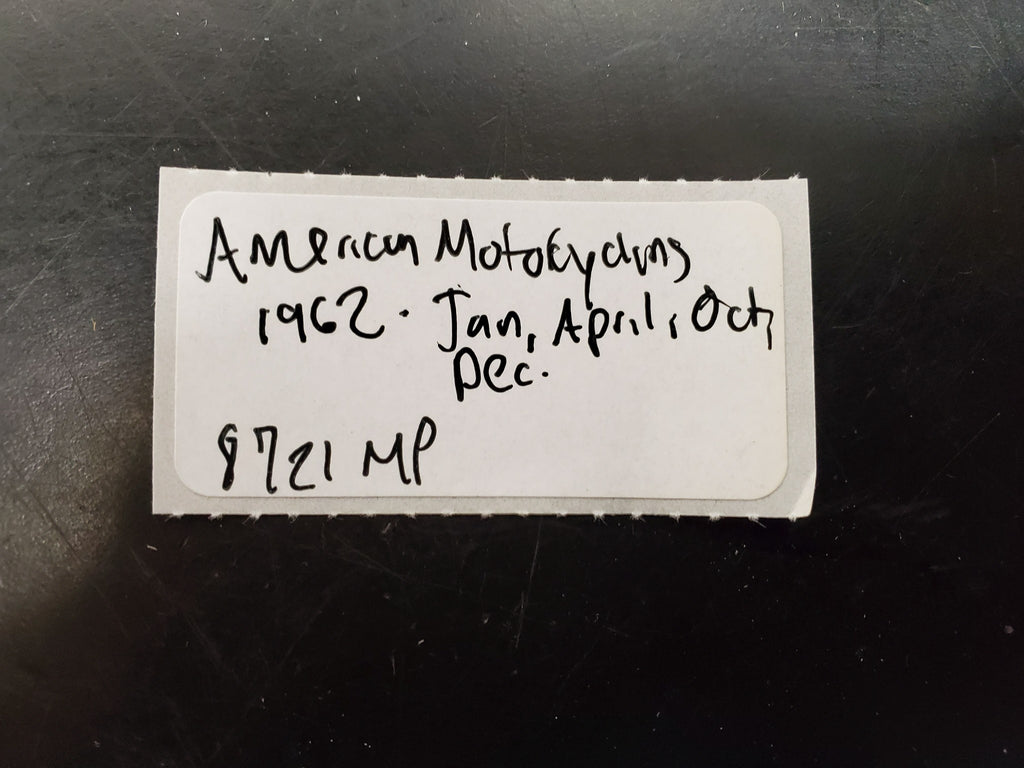 American Motocycling
1962. Jan, April, Oct,
Dec.
8721 MP